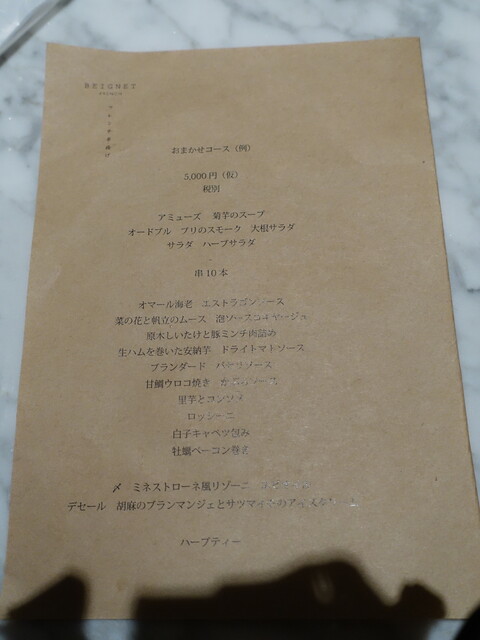 BEIGNET
おまかせコース（例）
5,000円（仮）
税別
アミューズ　菊芋のスープ
オードブル　ブリのスモーク　大根サラダ
サラダ　ハーブサラダ
串10本
オマール海老　エストラゴンソース
菜の花と帆立のムース　泡ソースコキヤージュ
原木しいたけと豚ミンチ肉詰め
生ハムを巻いた安納芋　ドライトマトソース
ブランダード　ソース
甘鯛ウロコ焼き　ソース
里芋とコンソメ
ロッシーニ
白子キャベツ包み
牡蠣ベーコン巻き
〆　ミネストローネ風リゾーニ
デセール　胡麻のブランマンジェとサツマイモのアイス
ハーブティー